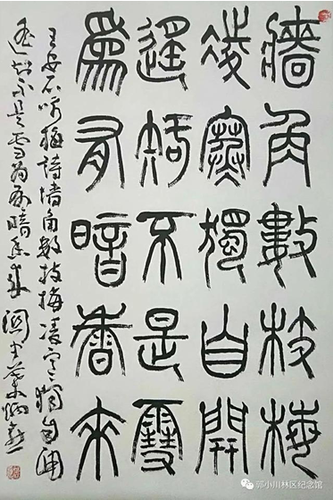 牆角數枝梅
凌寒獨自開
遙知不是雪
爲有暗香來
王安石咏梅詩墙角數枝梅凌寒獨自開
遥知不是雪为有暗香來
郭小川林区纪念馆